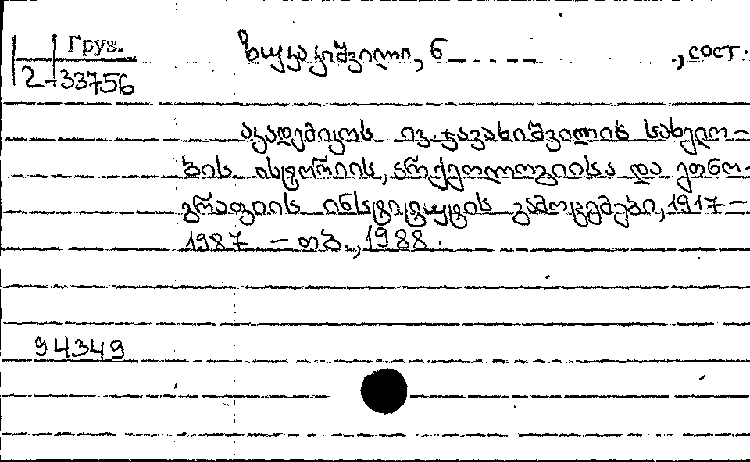 Груз.
2-33756
ნ., сост.
აკადემიკოს ივ. ჯავახიშვილის სახელო-
ბის ისტორიის, არქეოლოგიისა და ეთნო-
გრაფიის ინსტიტუტის გამოცემები, 1917-
1987 - თბ., 1988.
94349